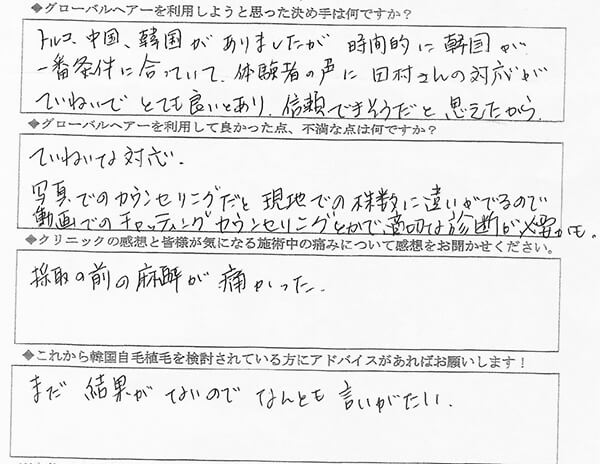 ◆グローバルヘアーを利用しようと思った決め手は何ですか?
トルコ、中国、韓国がありましたが 時間的に韓国が
一番条件に合っていて、体験者の声に田村さんの対応が
ていねいで とても良いとあり、信頼できそうだと思えたから。
◆グローバルヘアーを利用して良かった点、不満な点は何ですか?
ていねいな対応。
写真でのカウンセリングだと現地での株数に違いがでるので
動画でのチャッティングカウンセリングとかで適切な診断が必要かも。
◆クリニックの感想と皆様が気になる施術中の痛みについて感想をお聞かせください。
採取の前の麻酔が痛かった。
◆これから韓国自毛植毛を検討されている方にアドバイスがあればお願いします!
まだ 結果が でないので なんとも 言いがたい。